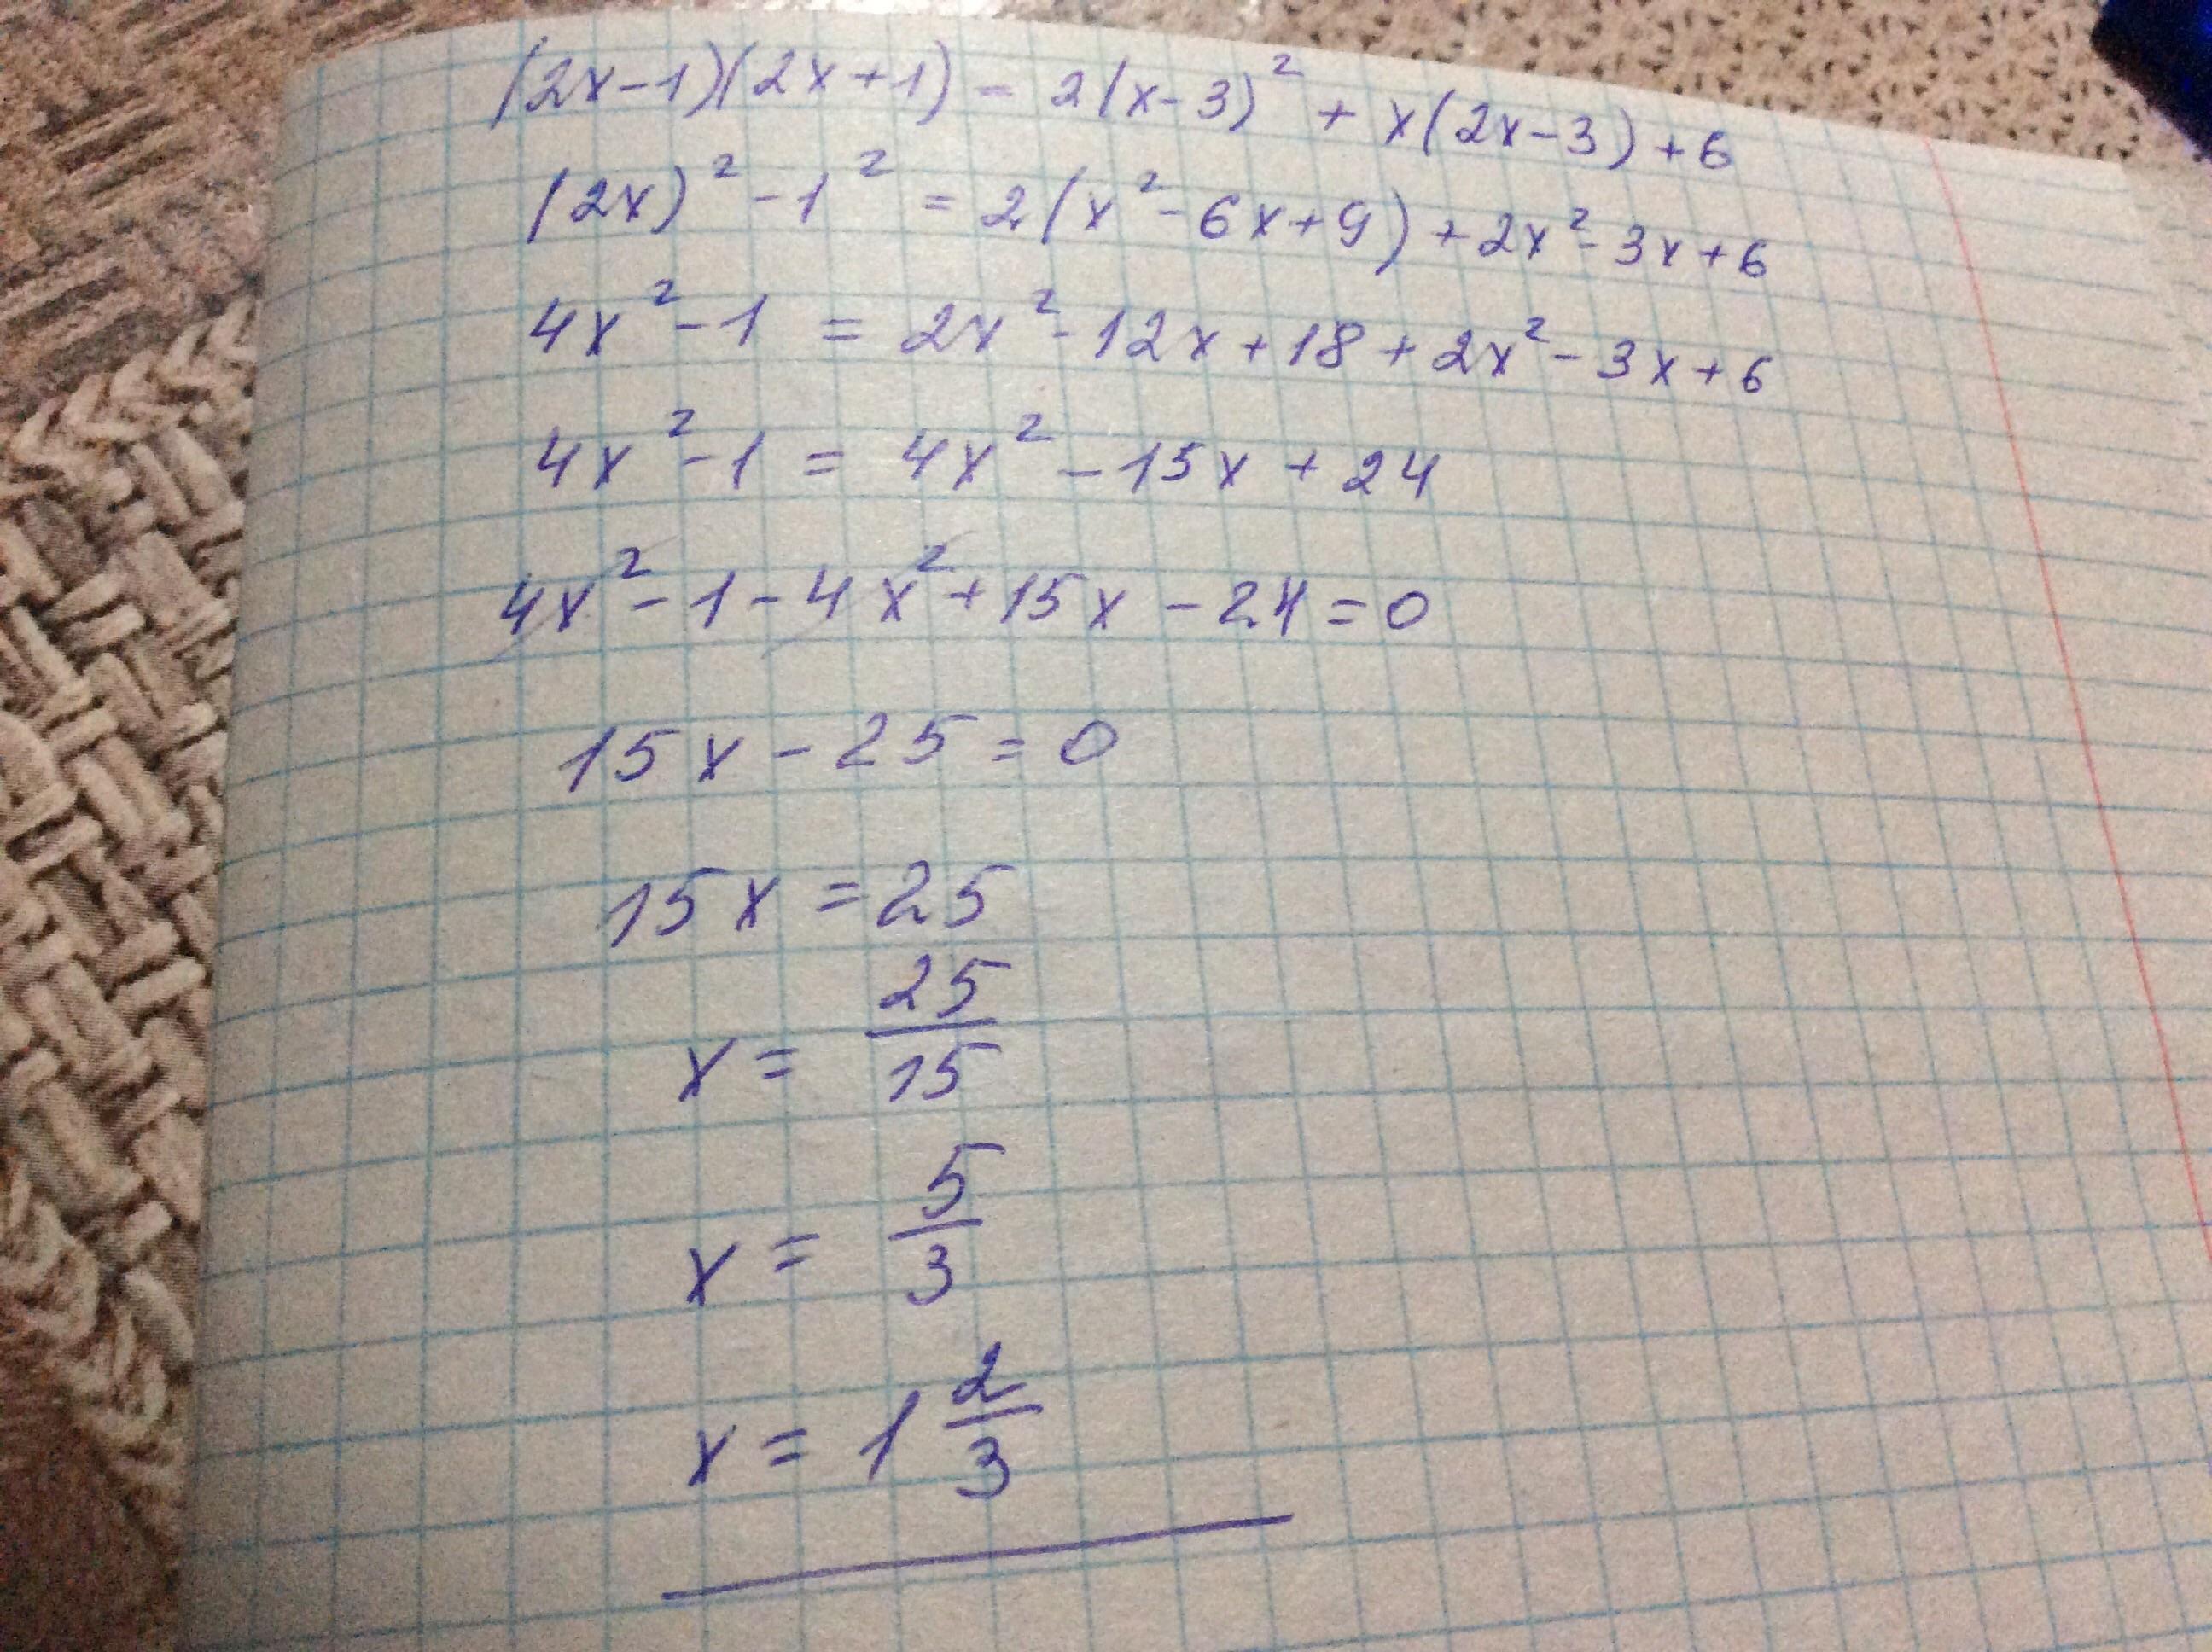 (2x-1)(2x+1) = 2(x-3)² + x(2x-3)+6
(2x)² - 1² = 2(x² - 6x+9) + 2x² - 3x+6
4x² - 1 = 2x² - 12x + 18 + 2x² - 3x + 6
4x² - 1 = 4x² - 15x + 24
4x² - 1 - 4x² + 15x - 24 = 0
15x - 25 = 0
15x = 25
x = 25/15
x = 5/3
x = 1 2/3